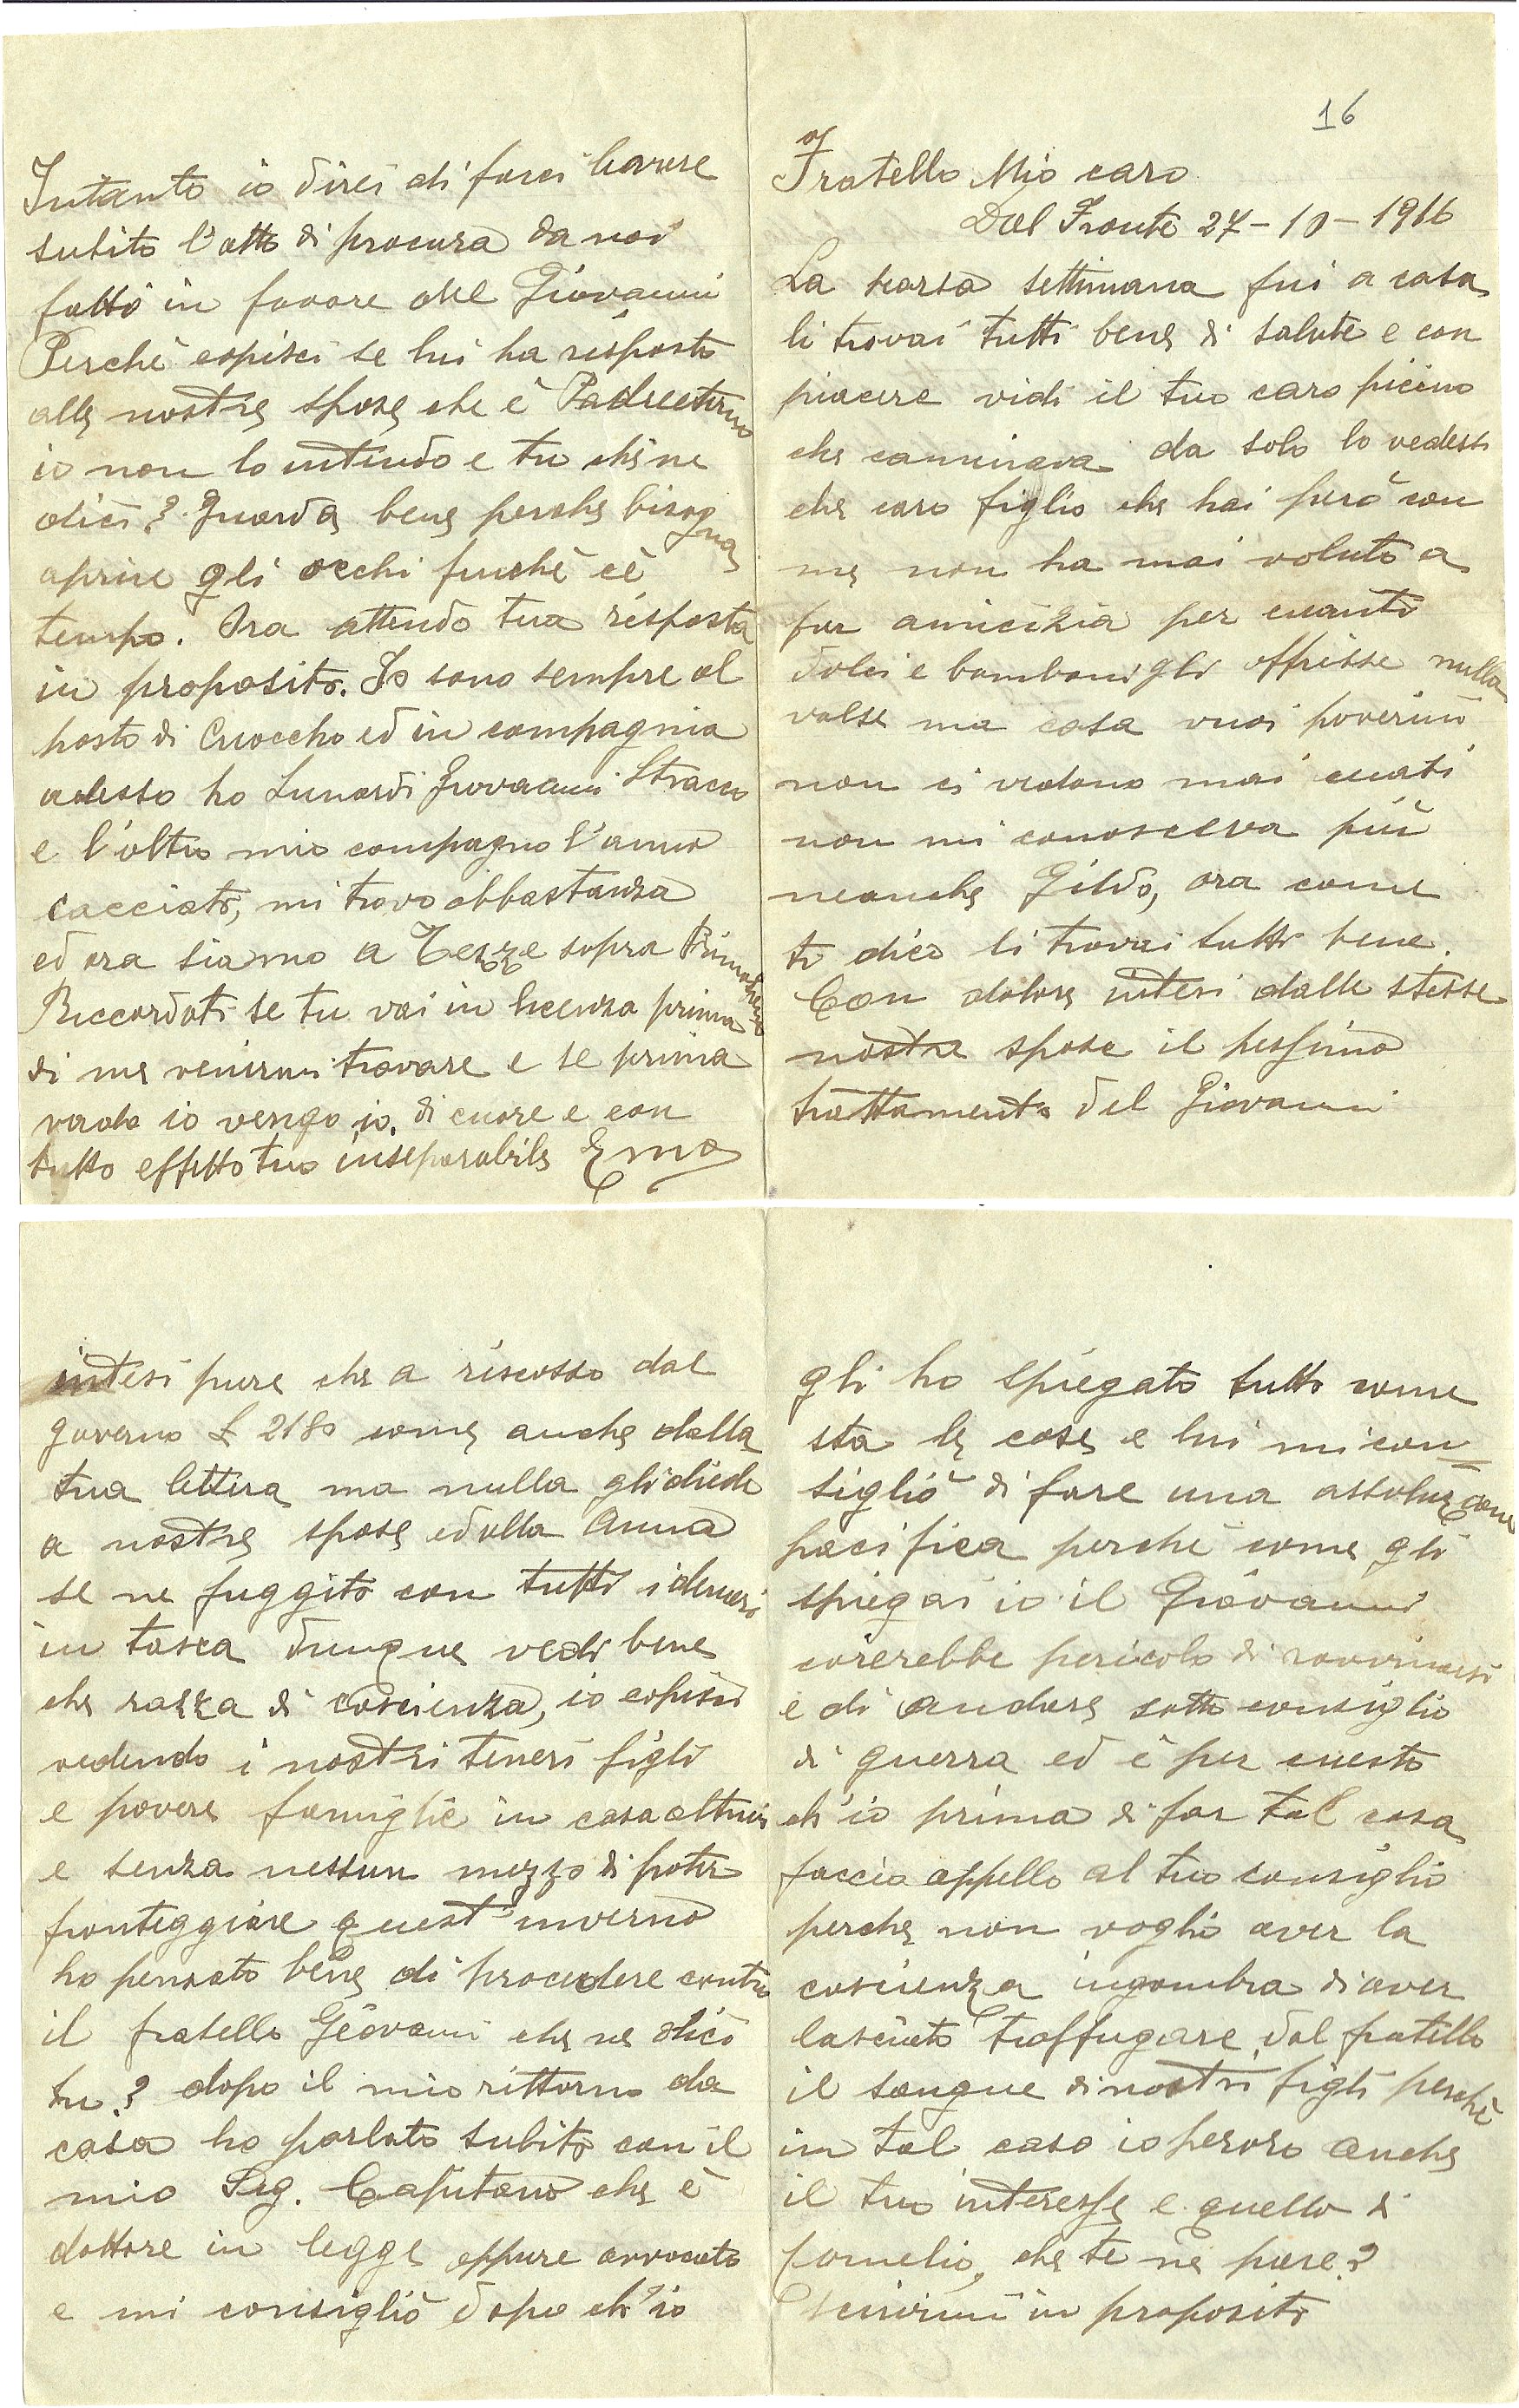 16
Fratello Mio caro
Dal Fronte 27-10-1916
La scorsa settimana fui a casa
li trovai tutti bene di salute e con
piacere vidi il tuo caro picino
che caminava da solo lo vedessi
che caro figlio che hai però con
me non ha mai voluto a
far amicizia per cuanti
dolci e bomboni gli offrisse nulla
valse ma cosa vuoi poverini
non ci vedono mai cuasi
non mi conosceva più
neanche Gildo, ora come
ti dico li trovai tutti bene.
Con dolore intesi dalle stesse
nostre spose il pessimo
trattamento del Giovanni
intesi pure che a riscosso dal
governo £ 2180 come anche dalla
tua lettera ma nulla gli diede
a nostre spose ed alla Anna
se ne fuggito con tutti i denari
in tasca dunque vedi bene
che razza di coscienza, io capisci
vedendo i nostri teneri figli
e povere famiglie in casa altrui
e senza nessun mezzo di poter
fronteggiare quest'inverno
ho pensato bene di procedere contro
il fratello Giovanni che ne dici
tu? dopo il mio rittorno da
casa ho parlato subito con il
mio Sig. Capitano che è
dottore in legge oppure avvocato
e mi consigliò dopo ch'io
gli ho spiegato tutto come
sta le cose e lui mi con=
sigliò di fare una assoluzione
pacifica perchè come gli
spiegai io il Giovanni
corerebbe pericolo di rovinarsi
e di andare sotto consiglio
di guerra ed è per cuesto
ch'io prima di far tal cosa
faccio appello al tuo consiglio
perche non voglio aver la
coscienza ingombra di aver
lasciato traffugare dal fratello
il sangue di nostri figli perchè
in tal caso io peroro anche
il tuo interesse e quello di
Cornelio, che te ne pare?
Scrivimi in proposito
Intanto io direi di farci
subito l'atto di procura da noi
fatto in favore del Giovanni
Perchè capisci se lui ha risposto
alle nostre spose che è Padreeterno
io non lo intendo e tu che ne
dici? Guarda bene perche bisogna
aprire gli occhi finchè cè
tempo. Ora attendo tua risposta
in proposito. Io sono sempre al
posto di Cuoccho ed in compagnia
adesso ho Lunardi Giovanni Stracco
e l'altro mio compagno l'anno
cacciato, mi trovo abbastanza
ed ora siamo a Tezze sopra Primolano
Riccordati se tu vai in licenza prima
di me venirmi trovare e se prima
vado io vengo io. di cuore e con
tutto effetto tuo inseparabile Emo